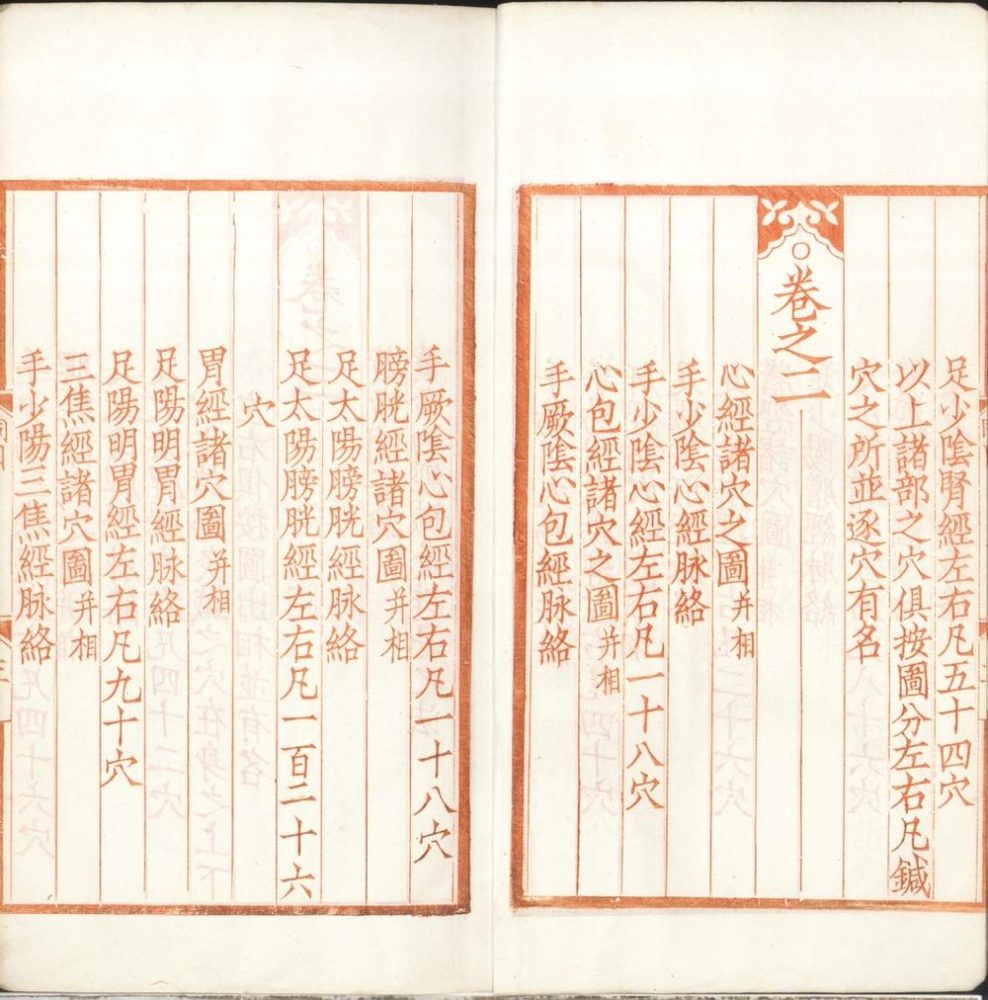 足少陰腎經左右凡五十四穴
以上諸部之穴俱按圖分左右凡鍼
穴之所並逐穴有名
卷之二
心經諸穴之圖并相
手少陰心經脉絡
手少陰心經左右凡一十八穴
心包經諸穴之圖并相
手厥陰心包經脉絡
手厥陰心包經左右凡一十八穴
膀胱經諸穴圖并相
足太陽膀胱經脉絡
足太陽膀胱經左右凡一百二十六
穴
胃經諸穴圖并相
足陽明胃經脉絡
足陽明胃經左右凡九十穴
三焦經諸穴圖并相
手少陽三焦經脉絡